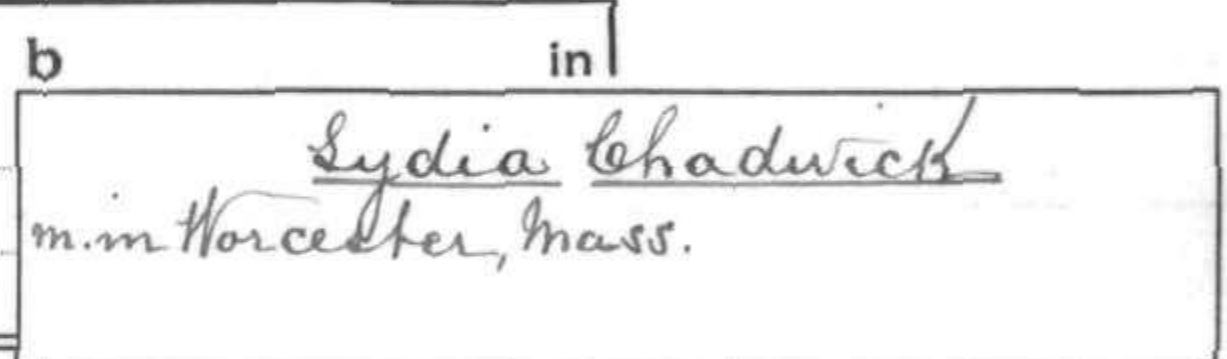 b in
Lydia Chadwick
m. in Worcester, Mass.